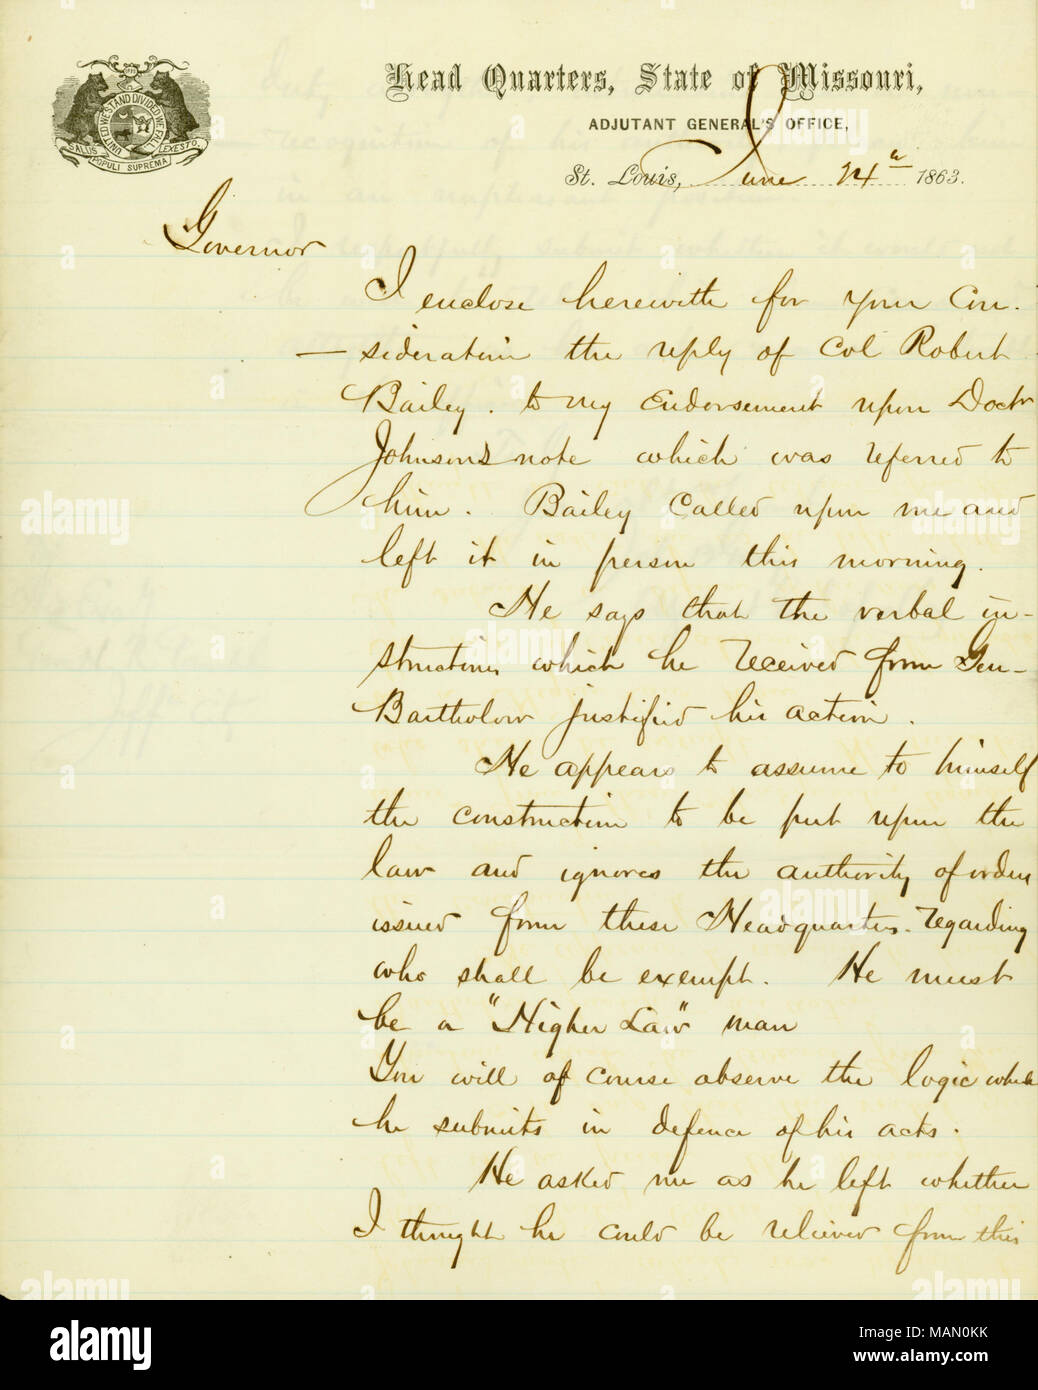 Head Quarters, State of Missouri,
ADJUTANT GENERAL'S OFFICE,
St. Louis, June 24th 1863.
UNITED WE STAND DIVIDED WE FALL
SALUS POPULI SUPREMA LEX ESTO
Governor
I enclose herewith for your Con-
-sideration the reply of Col Robert
Bailey. to my Endorsement upon Doctr
Johnson's note which was referred to
him. Bailey Called upon me and
left it in person this morning.
He says that the verbal in-
structions which he received from Gen-
Bartholow justified his action.
He appears to assume to himself
the construction to be put upon the
law and ignores the authority of orders
issued from these Headquarters. regarding
who shall be exempt. He must
be a "Higher Law" man
You will of course observe the logic which
he submits in defence of his acts.
He asked me as he left whether
I thought he could be releived from this
alamy
alamy
Image ID: MAN0KK
www.alamy.com